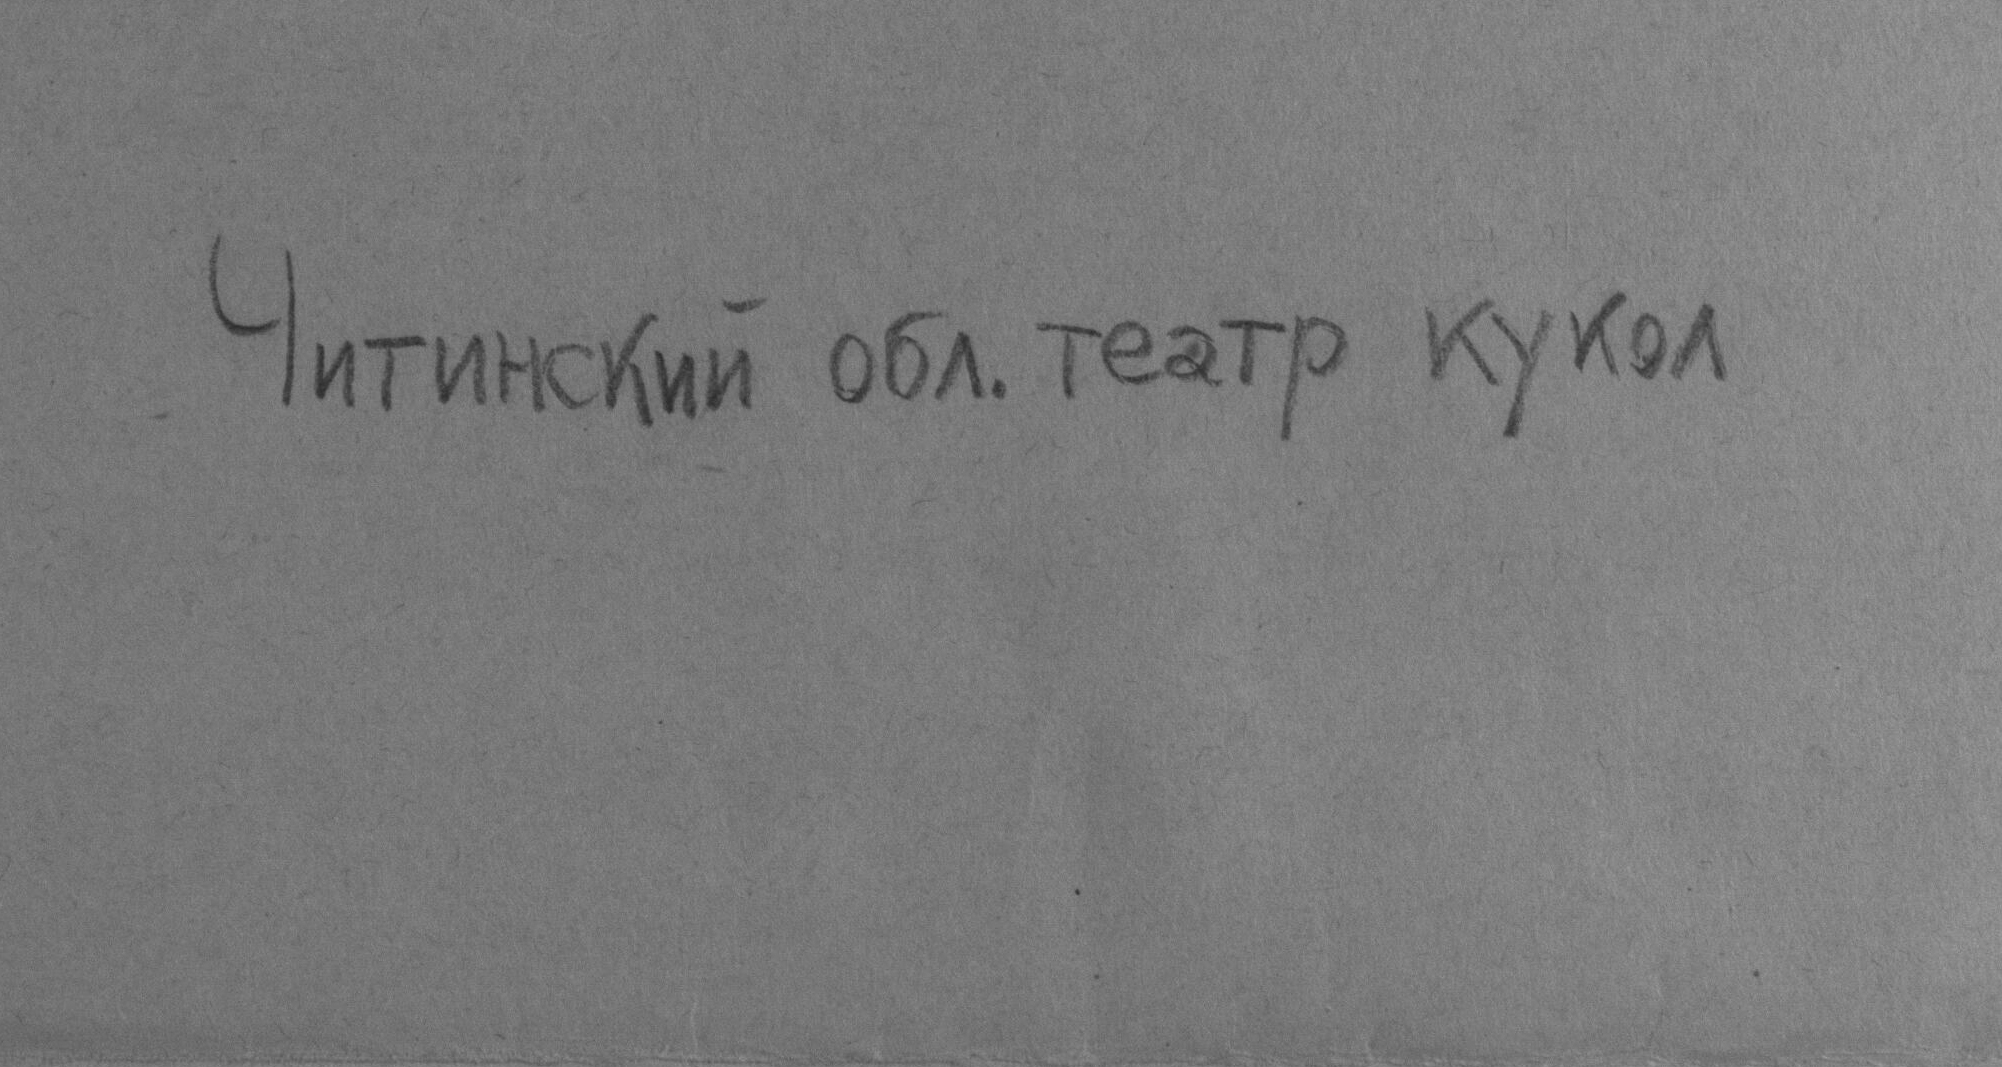 Читинский обл. театр кукол